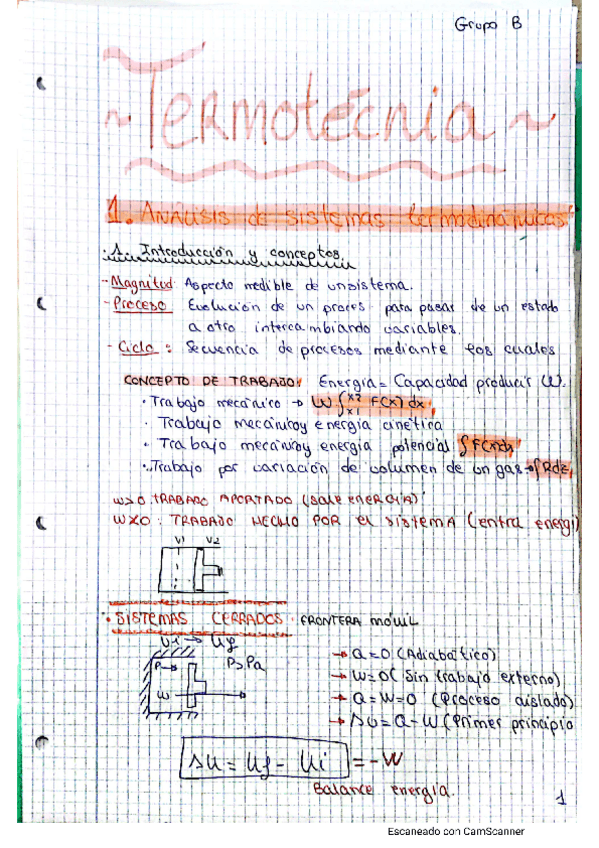 Grupo B
~ Termotécnia ~
1. Análisis de sistemas termodinámicos
1. Introducción y conceptos.
- Magnitud: Aspecto medible de un sistema.
- Proceso: Evolución de un proces para pasar de un estado
a otro intercambiando variables.
- Ciclo: Secuencia de procesos mediante los cuales
CONCEPTO DE TRABAJO: Energía = Capacidad producir W.
· Trabajo mecánico → W ∫x1 x2 F(x) dx
· Trabajo mecánico y energía cinética
· Trabajo mecánico y energía potencial ∫F(x)dx
· Trabajo por variación de volumen de un gas → ∫Rdz
W>0: TRABAJO APORTADO (sale ENERGÍA)
W<0: TRABAJO HECHO POR el sistema (entra energi)
V1 V2
· SISTEMAS CERRADOS. FRONTERA MÓVIL
Ui → Uf
P→ P>Pa
W
→ Q=0 (Adiabático)
→ W=0 (Sin trabajo externo)
→ Q=W=0 (Proceso aislado)
→ ΔU=Q-W (Primer principio
ΔU = Uf - Ui = -W
Balance energía.
1
Escaneado con CamScanner